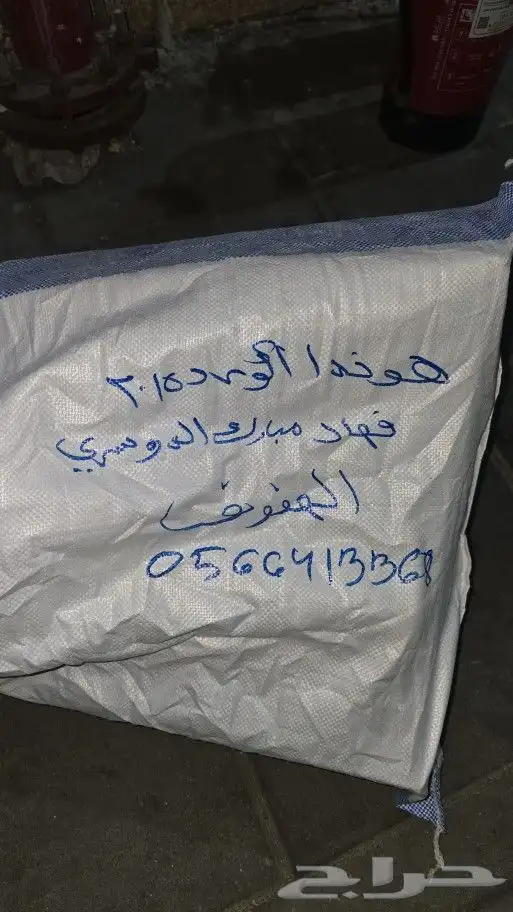 هوندا اكورد ٢٠١٥
فهاد مبارك الدوسري
الهفوف
0566413368
حراج